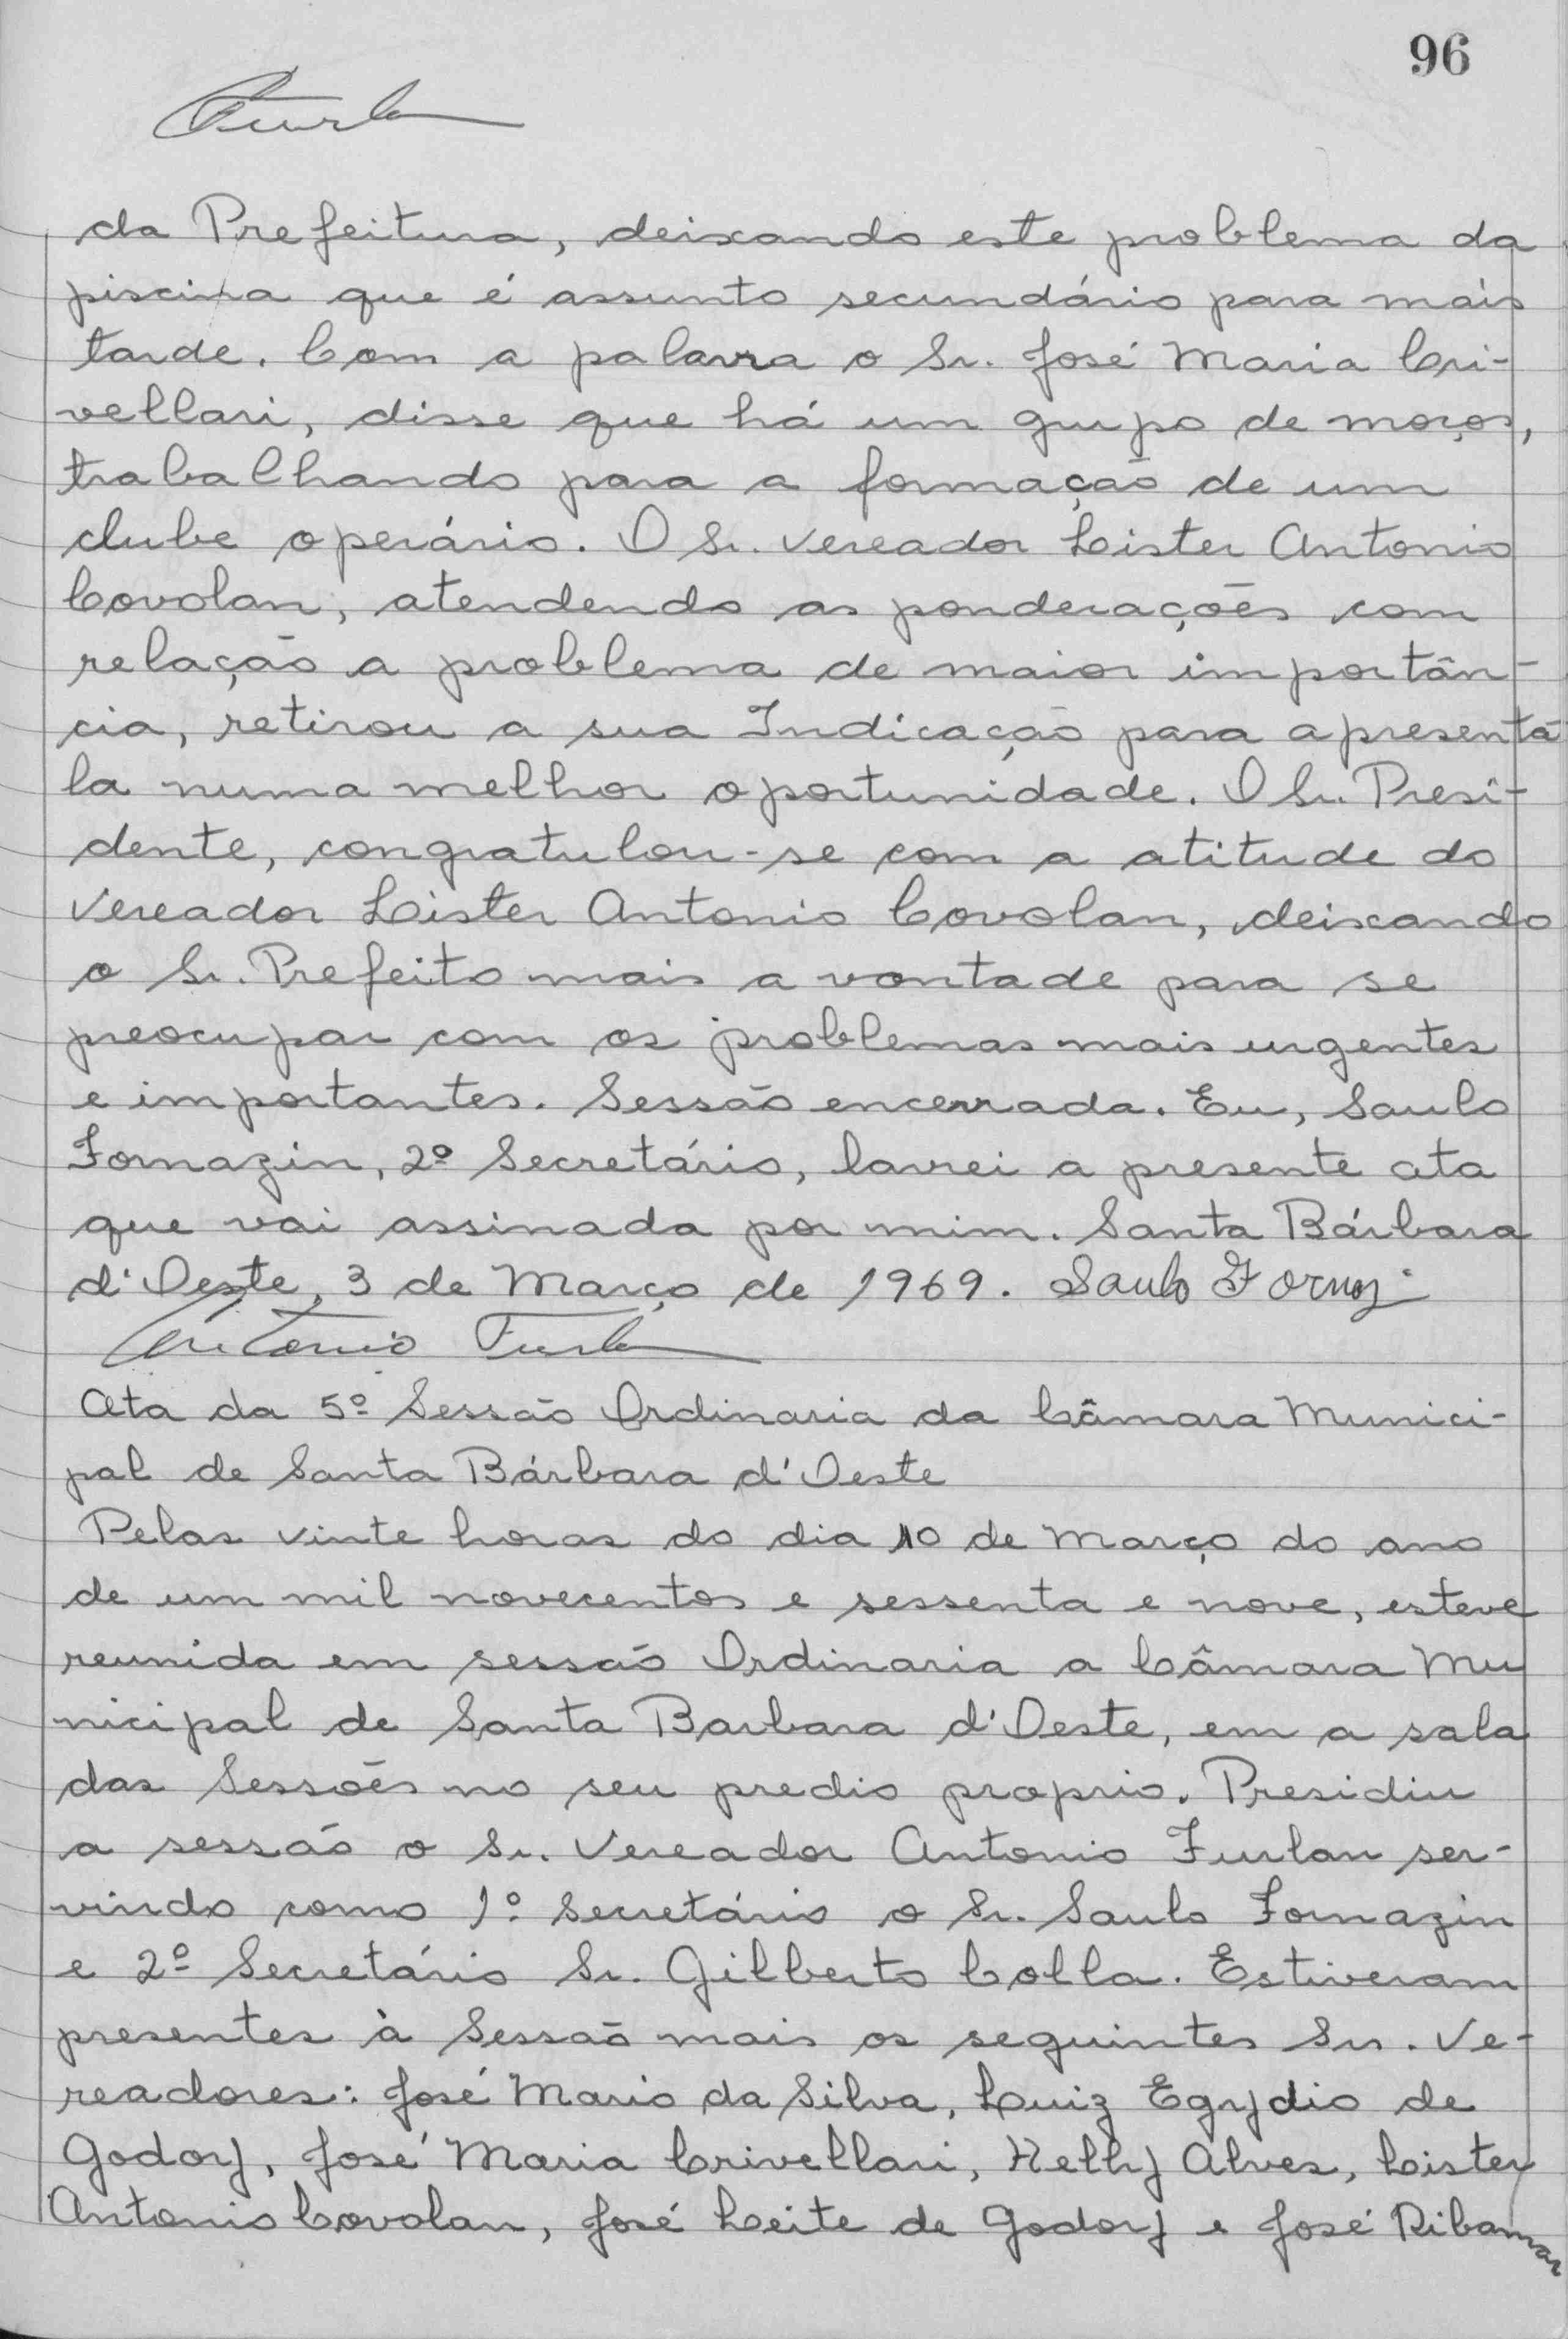 96
AFurlan
da Prefeitura, deixando este problema da
piscina que é assunto secundário para mais
tarde. Com a palavra o Sr. José Maria Cri-
vellari, disse que há um grupo de moços,
trabalhando para a formação de um
clube operário. O Sr. Vereador Lister Antonio
Covolan, atendendo as ponderações com
relação a problema de maior importân-
cia, retirou a sua Indicação para apresentá-
la numa melhor oportunidade. O Sr. Presi-
dente, congratulou-se com a atitude do
Vereador Lister Antonio Covolan, deixando
o Sr. Prefeito mais a vontade para se
preocupar com os problemas mais urgentes
e importantes. Sessão encerrada. Eu, Saulo
Fornazin, 2º Secretário, lavrei a presente ata
que vai assinada por mim. Santa Bárbara
d'Oeste, 3 de Março de 1969. Saulo Fornaz
Antonio Furlan
Ata da 5º Sessão Ordinaria da Câmara Munici-
pal de Santa Bárbara d'Oeste
Pelas vinte horas do dia 10 de Março do ano
de um mil novecentos e sessenta e nove, esteve
reunida em sessão Ordinaria a Câmara Mu
nicipal de Santa Barbara d'Oeste, em a sala
das Sessões no seu predio proprio. Presidiu
a sessão o Sr. Vereador Antonio Furlan ser-
vindo como 1º Secretário o Sr. Saulo Fornazin
e 2º Secretário Sr. Gilberto Colla. Estiveram
presentes à Sessão mais os seguintes Srs. Ve-
readores: José Mario da Silva, Luiz Egydio de
Godoy, José Maria Crivellari, Helly Alves, Lister
Antonio Covolan, José Leite de Godoy e José Ribamar